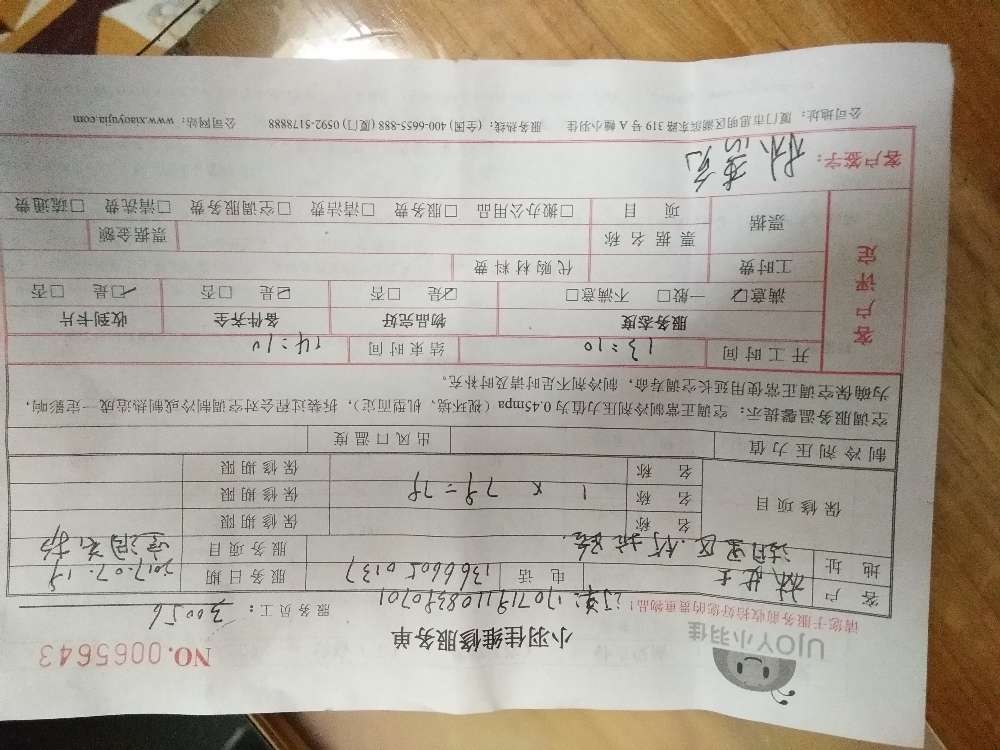 UJOY小羽佳
NO.0065643
小羽佳维修服务单
请您于服务前收拾好您的贵重物品!
服务员工: 30056
客户 林女士 电话 13666050137 服务日期 2017.07.19
地址 湖里区 服务项目 空调
保修项目 名称 保修期限
名称 1 × 79 = 79 保修期限
名称 保修期限
制冷剂压力值 出风口温度
空调服务温馨提示: 空调正常制冷剂压力值为0.45mpa(视环境、机型而定),拆装过程会对空调制冷或制热造成一定影响,
为确保空调正常使用延长空调寿命,制冷剂不足时请及时补充。
客户评定
开工时间 13:10 结束时间 14:10
服务态度 物品完好 备件齐全 收到卡片
满意☑ 一般□ 不满意□ ☑是 □否 ☑是 □否 ☑是 □否
工时费 代购材料费
票据 票据名称 票据金额
项目 □搬办公用品 □服务费 □清洁费 □空调服务费 □清洗费 □疏通费
客户签字:
公司地址: 厦门市思明区湖滨东路319号A幢小羽佳 服务热线: (全国) 400-6655-888 (厦门) 0592-5178888 公司网站: www.xiaoyujia.com